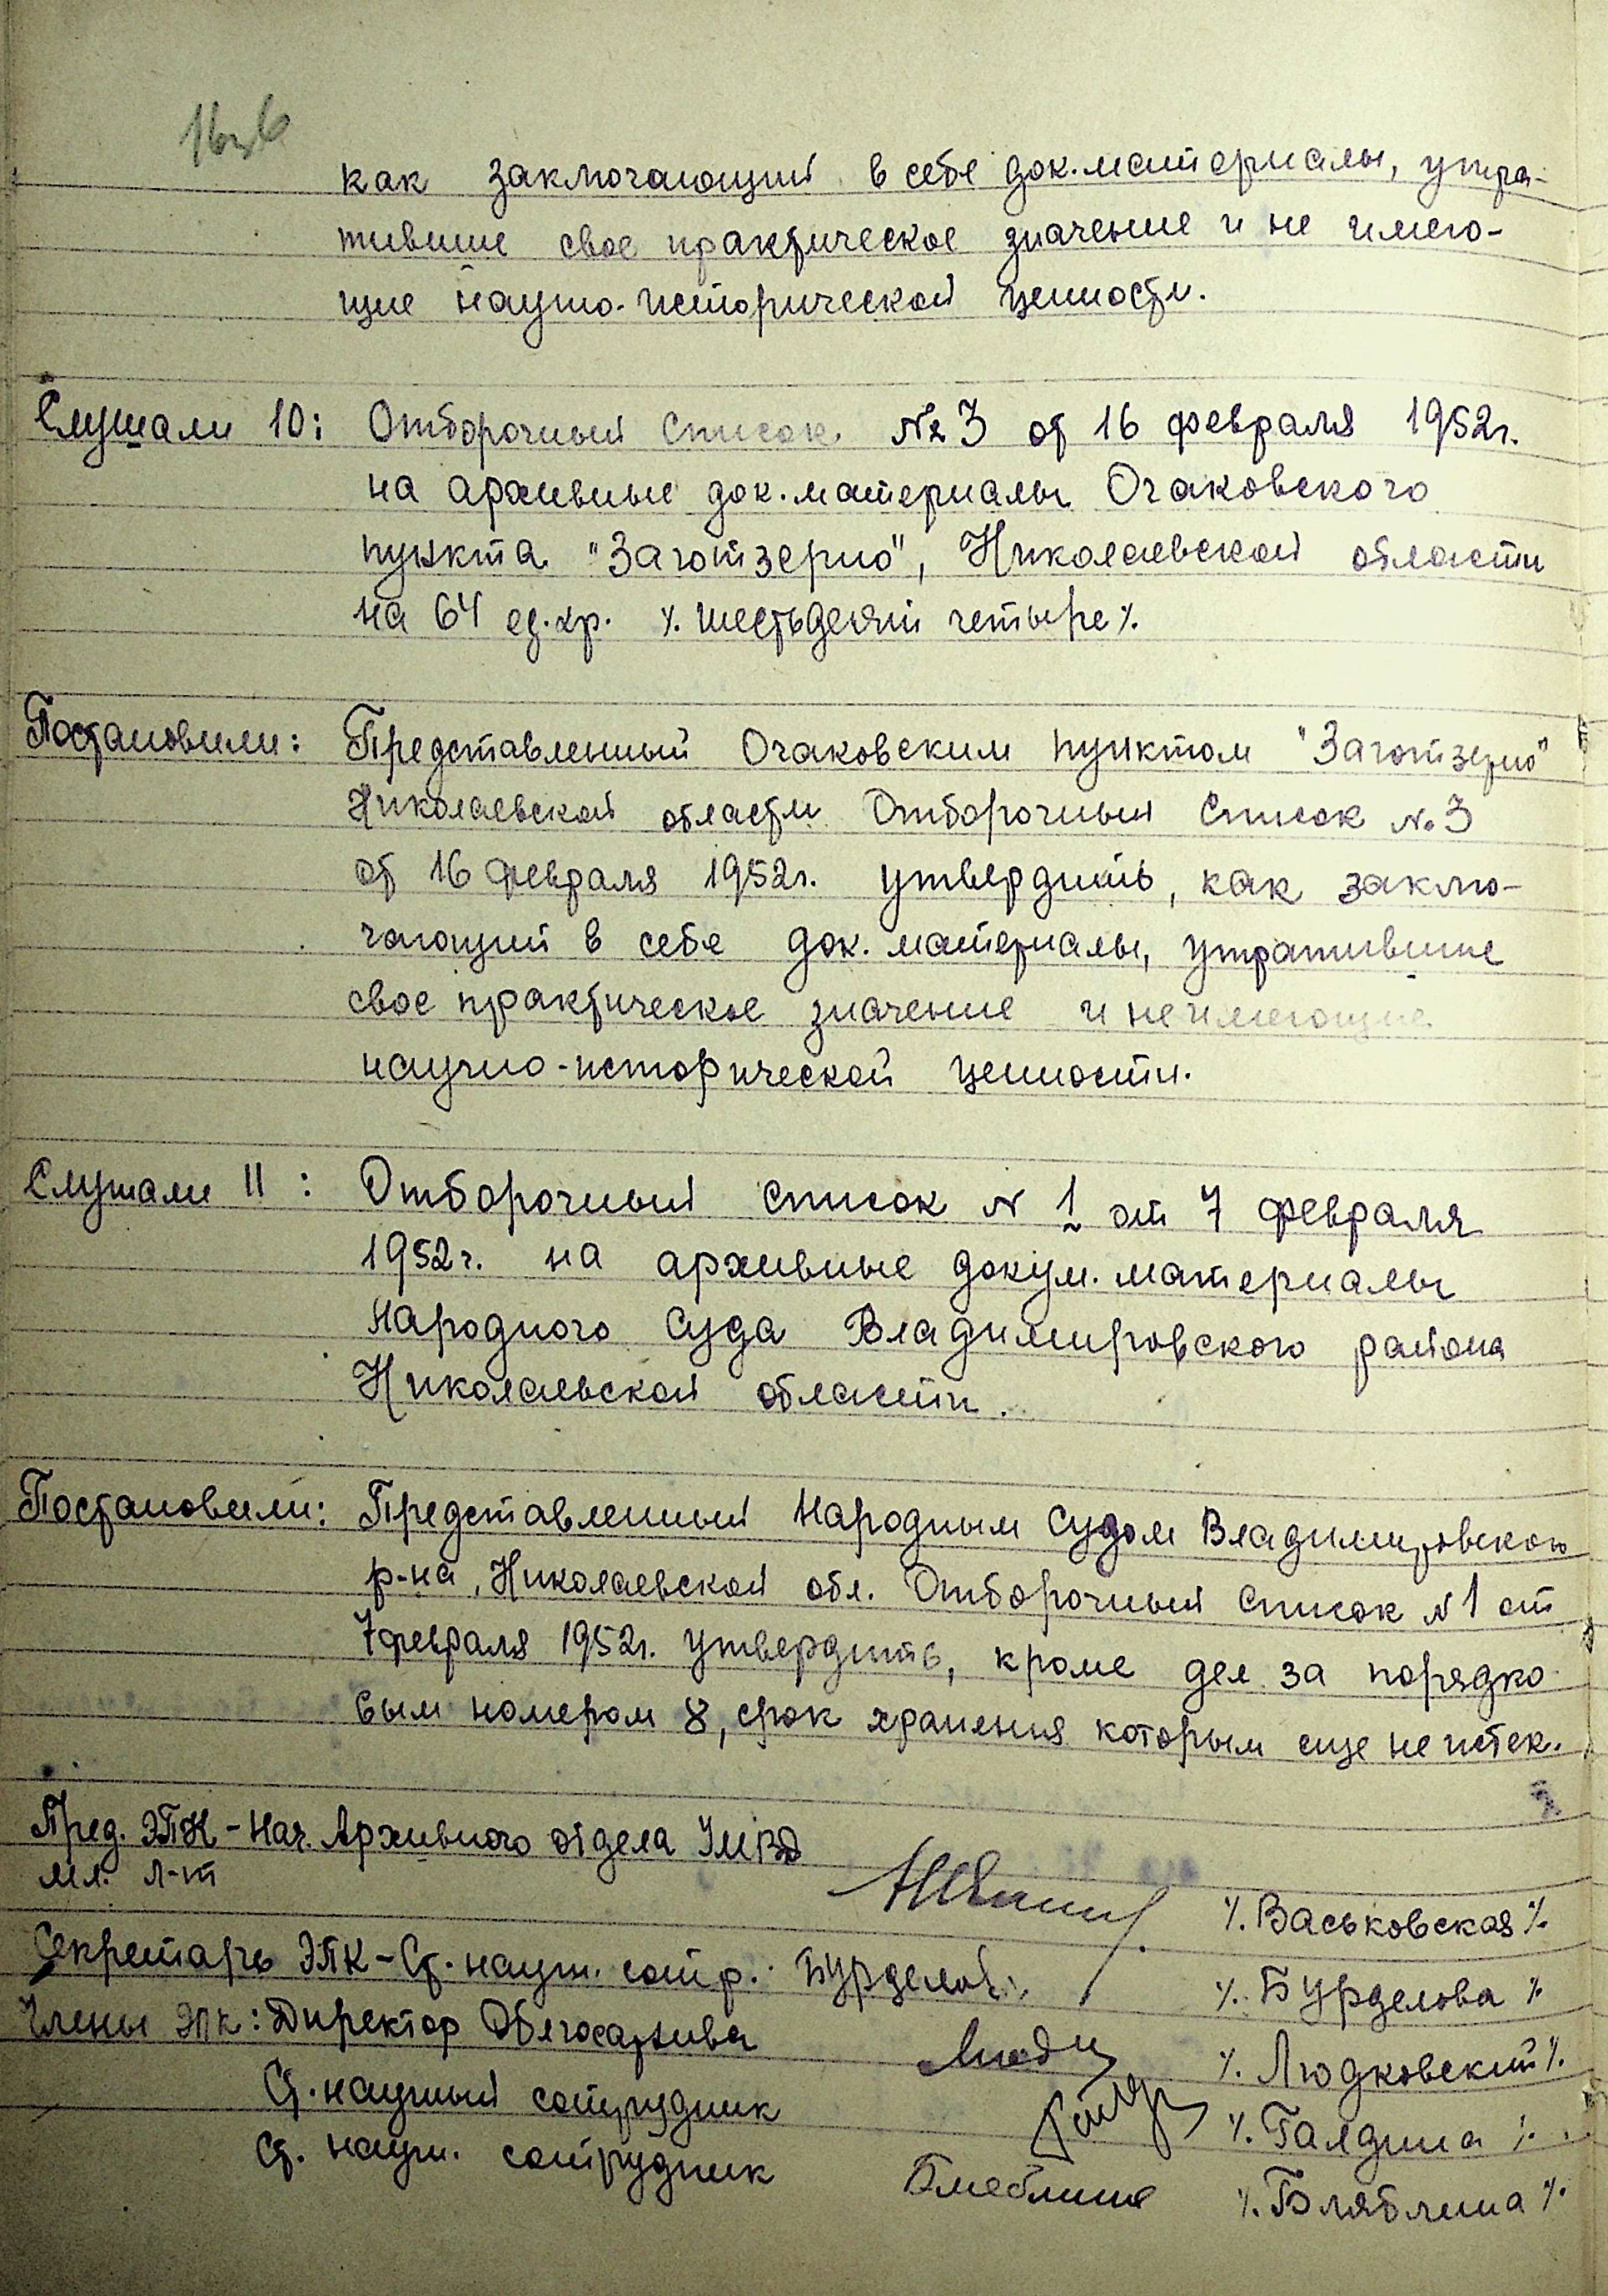 как заключающий в себе док. материалы, утра-
тившие свое практическое значение и не имею-
щие научно-исторической ценности.
Слушали 10: Отборочный список №3 от 16 февраля 1952г.
на архивные док. материалы Очаковского
пункта "Заготзерно", Николаевской области
на 64 ед. хр. %. шестьдесят четыре %.
Постановили: Представленный Очаковским пунктом "Заготзерно"
Николаевской области Отборочный список №3
от 16 февраля 1952г. утвердить, как заклю-
чающий в себе док. материалы, утратившие
свое практическое значение и не имеющие
научно-исторической ценности.
Слушали 11: Отборочный список N 1 от 7 февраля
1952г. на архивные докум. материалы
Народного Суда Владимировского района
Николаевской области.
Постановили: Представленный Народным Судом Владимировского
р-на, Николаевской обл. Отборочный список N1 от
7 февраля 1952г. утвердить, кроме дел за порядко
вым номером 8, срок хранения которым еще не истек.
Пред. ЭПК - Нач. Архивного отдела УМВД
мл. л-т %. Васьковская %.
Секретарь ЭПК - Ст. научн. сотр.: %. Бурделова %
Члены ЭПК: Директор Облгосархива %. Людковский %.
Ст. научный сотрудник %. Галдина %.
Ст. научн. сотрудник %. Бляблина %.